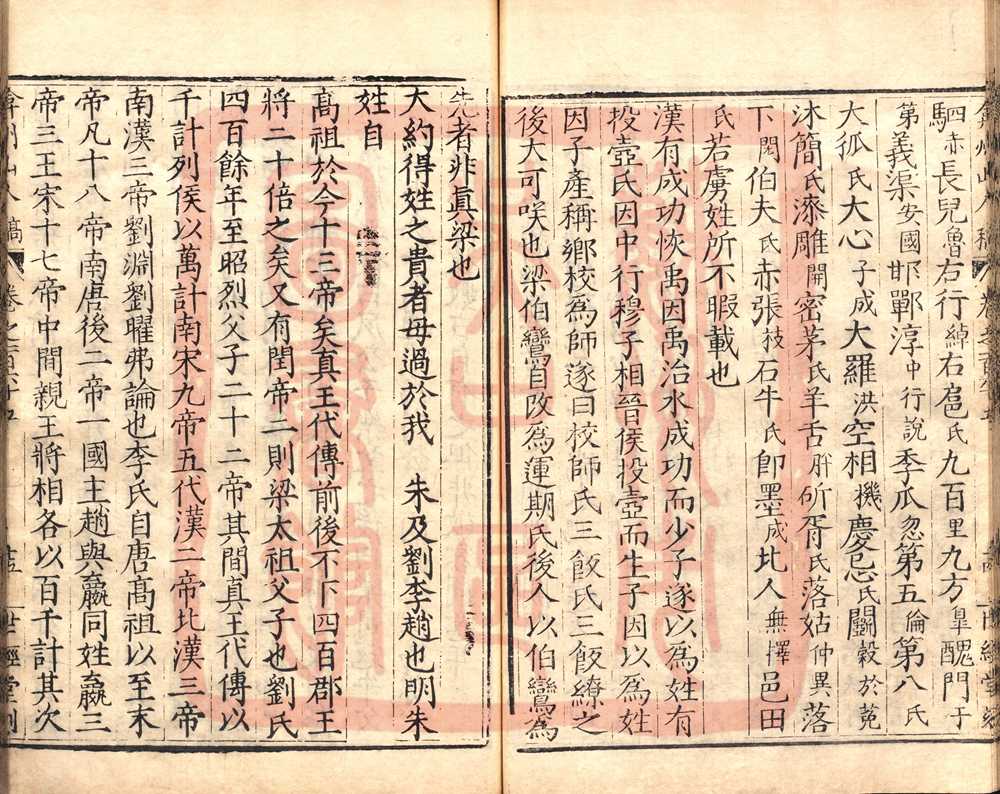 駟赤長兒魯右行綽右扈氏九百里九方臯醜門于
第義渠安國邯鄲淳中行說季瓜忽第五倫第八氏
大狐氏大心子成大羅洪空相機慶忌氏鬭穀於菟
沐簡氏漆雕開密茅氏羊舌肸斫胥氏落姑仲異落
下閎伯夫氏赤張技石牛氏卽墨成北人無擇邑田
氏若虜姓所不暇載也
漢有成功恢禹因禹治水成功而少子遂以為姓有
投壺氏因中行穆子相晉侯投壺而生子因以為姓
因子產稱鄉校為師遂曰校師氏三飯氏三飯繚之
後大可咲也梁伯鸞自改為運期氏後人以伯鸞為
先者非真梁也
大約得姓之貴者毋過於我 朱及劉李趙也明朱
姓自
高祖於今十三帝矣真王代傳前後不下四百郡王
將二十倍之矣又有閏帝二則梁太祖父子也劉氏
四百餘年至昭烈父子二十二帝其間真王代傳以
千計列侯以萬計南宋九帝五代漢二帝北漢三帝
南漢三帝劉淵劉曜弗論也李氏自唐高祖以至末
帝凡十八帝南唐後二帝一國主趙與嬴同姓嬴三
帝三王宋十七帝中間親王將相各以百千計其次
弇州山人稿 卷之百六十五 十五 世經堂刻